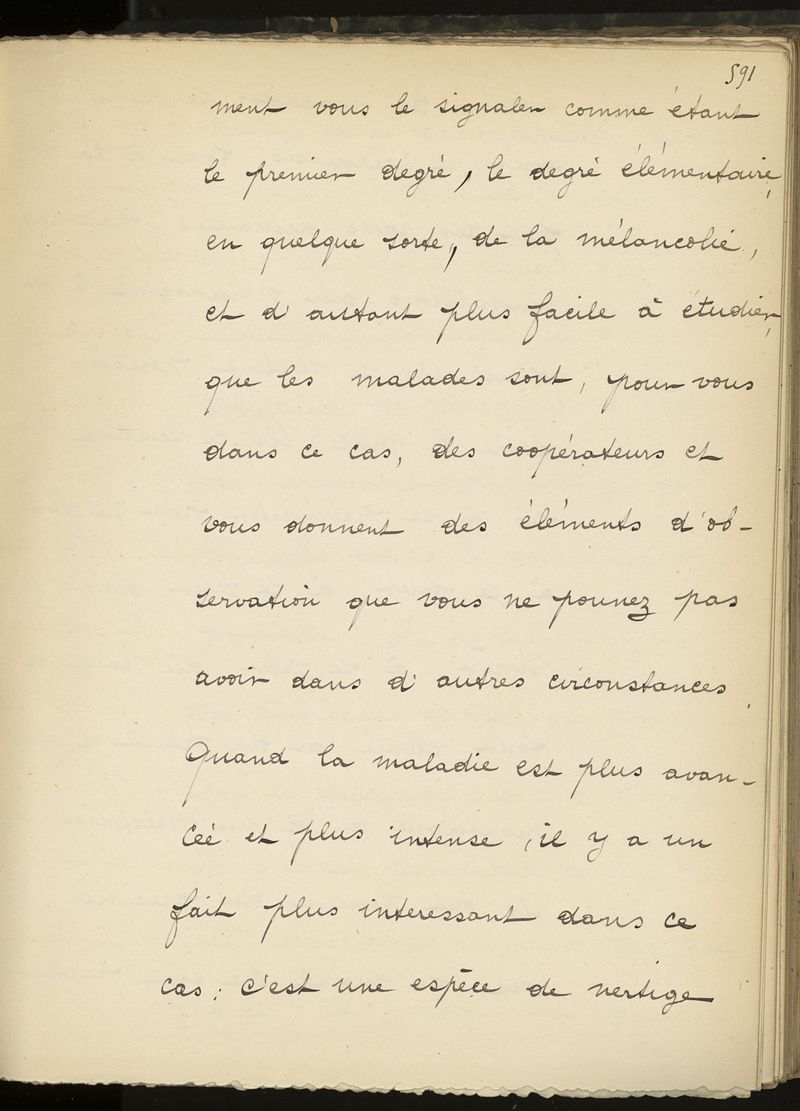 591
ment vous le signaler comme étant
le premier degré, le degré élémentaire,
en quelque sorte, de la mélancolie,
et d'autant plus facile à étudier,
que les malades sont, pour vous
dans ce cas, des coopérateurs et
vous donnent des éléments d'ob-
servation que vous ne pouvez pas
avoir dans d'autres circonstances.
Quand la maladie est plus avan-
cée et plus intense, il y a un
fait plus interessant dans ce
cas: c'est une espèce de vertige